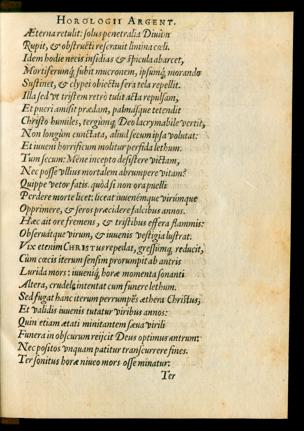 HOROLOGII ARGENT.
Æterna retulit: solus penetralia Diuûm
Rupit, & obstructi reserauit limina cœli.
Idem hodie necis insidias & spicula abarcet,
Mortiferumq́; subit mucronem, ipsumq́; morando
Sustinet, & clypei obiectu fera tela repellit.
Illa sed vt tristem retrò tulit acta repulsam,
Et pueri amisit prædam, palmasque tetendit
Christo humiles, tergumq́; Deo lacrymabile vertit,
Non longùm cunctata, aliud secum ipsa volutat:
Et iuueni horrificum molitur perfida lethum.
Tum secum: Méne incepto desistere victam,
Nec posse vllius mortalem abrumpere vitam?
Quippe vetor fatis. quòd si non ora puelli
Perdere morte licet: liceat iuuenémque virúmque
Opprimere, & seros præcidere falcibus annos.
Hæc ait ore fremens, & tristibus effera flammis:
Obseruátque virum, & iuuenis vestigia lustrat.
Vix etenim CHRISTUS repedat, gressumq́; reducit,
Cùm cæcis iterum sensim prorumpit ab antris
Lurida mors: iuueniq́; horæ momenta sonanti
Altera, crudele intentat cum funere lethum.
Sed fugat hanc iterum perrumpẽs æthera Christus,
Et validi iuuenis tutatur viribus annos:
Quin etiam ætati minitantem sæua virili
Funera in obscurum reijcit Deus optimus antrum:
Nec positos vnquam patitur transcurrere fines.
Ter sonitus horæ niueo mors osse minatur:
Ter